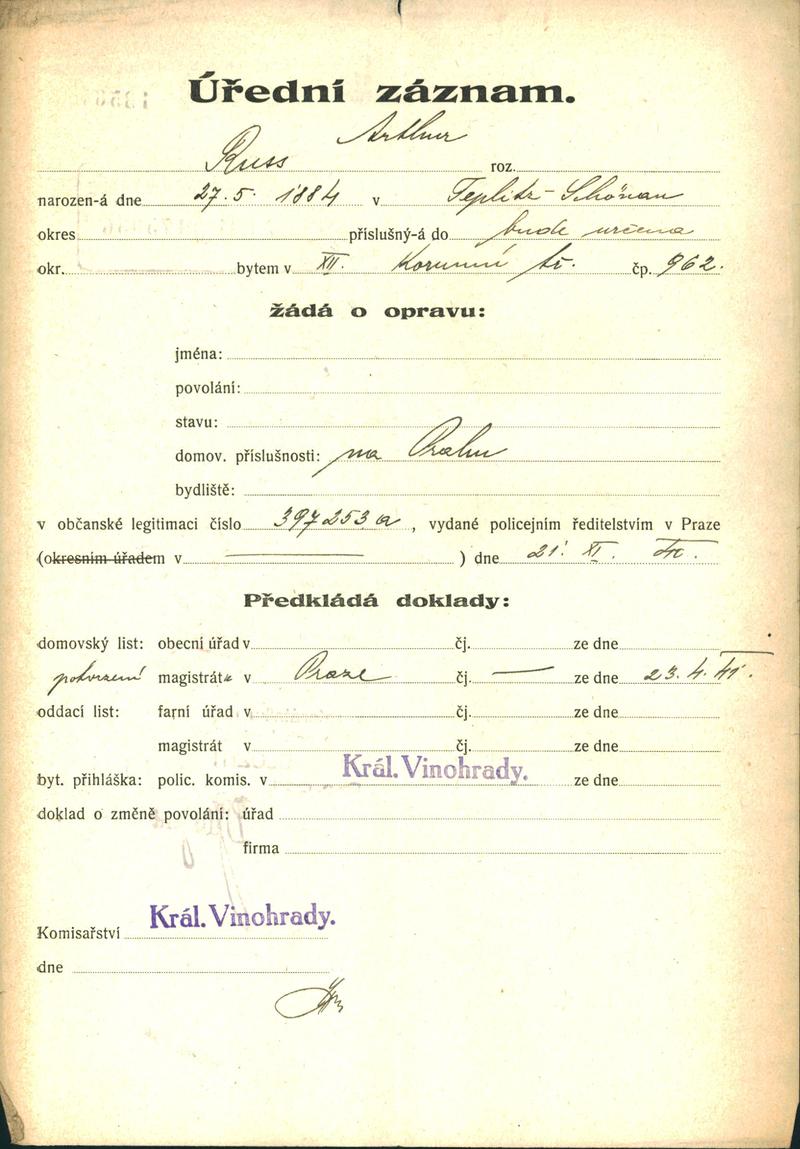 Úřední záznam.
Arthur
Russ roz.
narozen-á dne 27. 5. 1884 v Teplitz-Schönau
okres příslušný-á do bude určena
okr. bytem v XII. Korunní tř. čp. 962.
žádá o opravu:
jména:
povolání:
stavu:
domov. příslušnosti: na Prahu
bydliště:
v občanské legitimaci číslo 397253a, vydané policejním ředitelstvím v Praze
(okresním úřadem v ) dne 21. XI. 40.
Předkládá doklady:
domovský list: obecní úřad v čj. ze dne
potvrzení magistrátu v Praze čj. — ze dne 23. 4. 41.
oddací list: farní úřad v čj. ze dne
magistrát v čj. ze dne
byt. přihláška: polic. komis. v Král. Vinohrady. ze dne
doklad o změně povolání: úřad
firma
Komisařství Král. Vinohrady.
dne